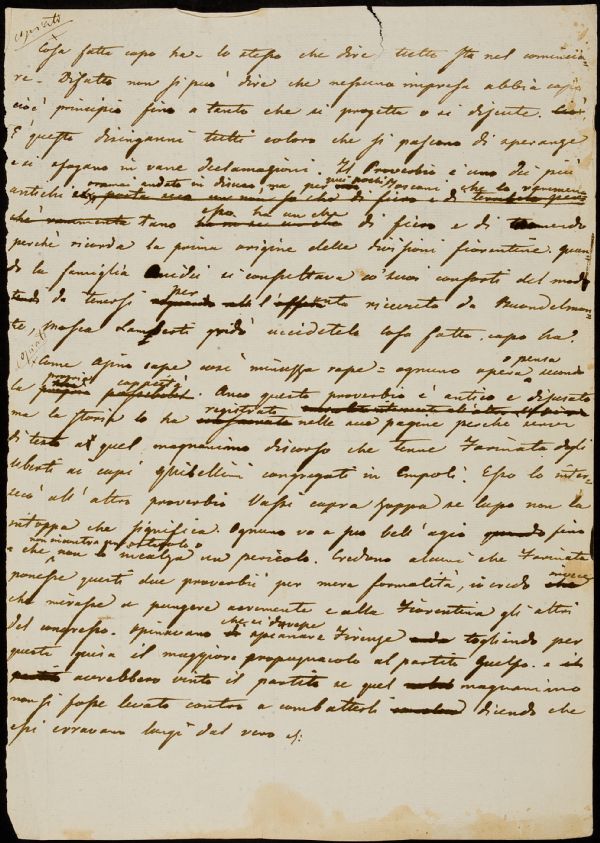 copiato
Cosa fatta capo ha - lo stesso che dire tutto sta nel comincia=
re - Difatto non si può dire che nessuna impresa abbia capo
cioè principio fino a tanto che si progetta o si discute.
E questo disinganni tutti coloro che si pascono di speranze
e si sfogano in vane declamazioni. Il Proverbio è uno dei più
antichi andato in disuso, ma per quei pochi Toscani che lo rammen
tano esso ha un che di fiero e di tremendo
perchè ricorda la prima origine delle divisioni fiorentine quan
do la famiglia Amidei si consultava co' suoi consorti del modo
da tenersi per l' ricevuto da Buondelmon
te, Mosca Lamberti gridò uccidetelo cosa fatta, capo ha.
copiato
Come asino sape così minuzza rape = ognuno opera o pensa secondo
la propria capacità. Anco questo proverbio è antico e disusato
ma la storia lo ha registrato nelle sue pagine perchè servì
di testo a quel magnanimo discorso che tenne Farinata degli
Uberti ai capi ghibellini congregati in Empoli. Esso lo inter=
secò all' altro proverbio Vassi capra zoppa se lupo non la
intoppa che significa. Ognuno va a suo bell' agio fino
= che non incontra un ostacolo o non lo incalza un pericolo. Credono alcuni che Farinata
ponesse questi due proverbii per mera formalità, io credo invece
che mirasse a pungere acremente e alla Fiorentina gli altri
del congresso. opinavano che si dovesse spianare Firenze togliendo per
questa guisa il maggiore propugnacolo al partito Guelfo. e
averebbero vinto il partito se quel magnanimo
non si fosse levato contro a combatterli dicendo che
essi erravano lungi dal vero &: